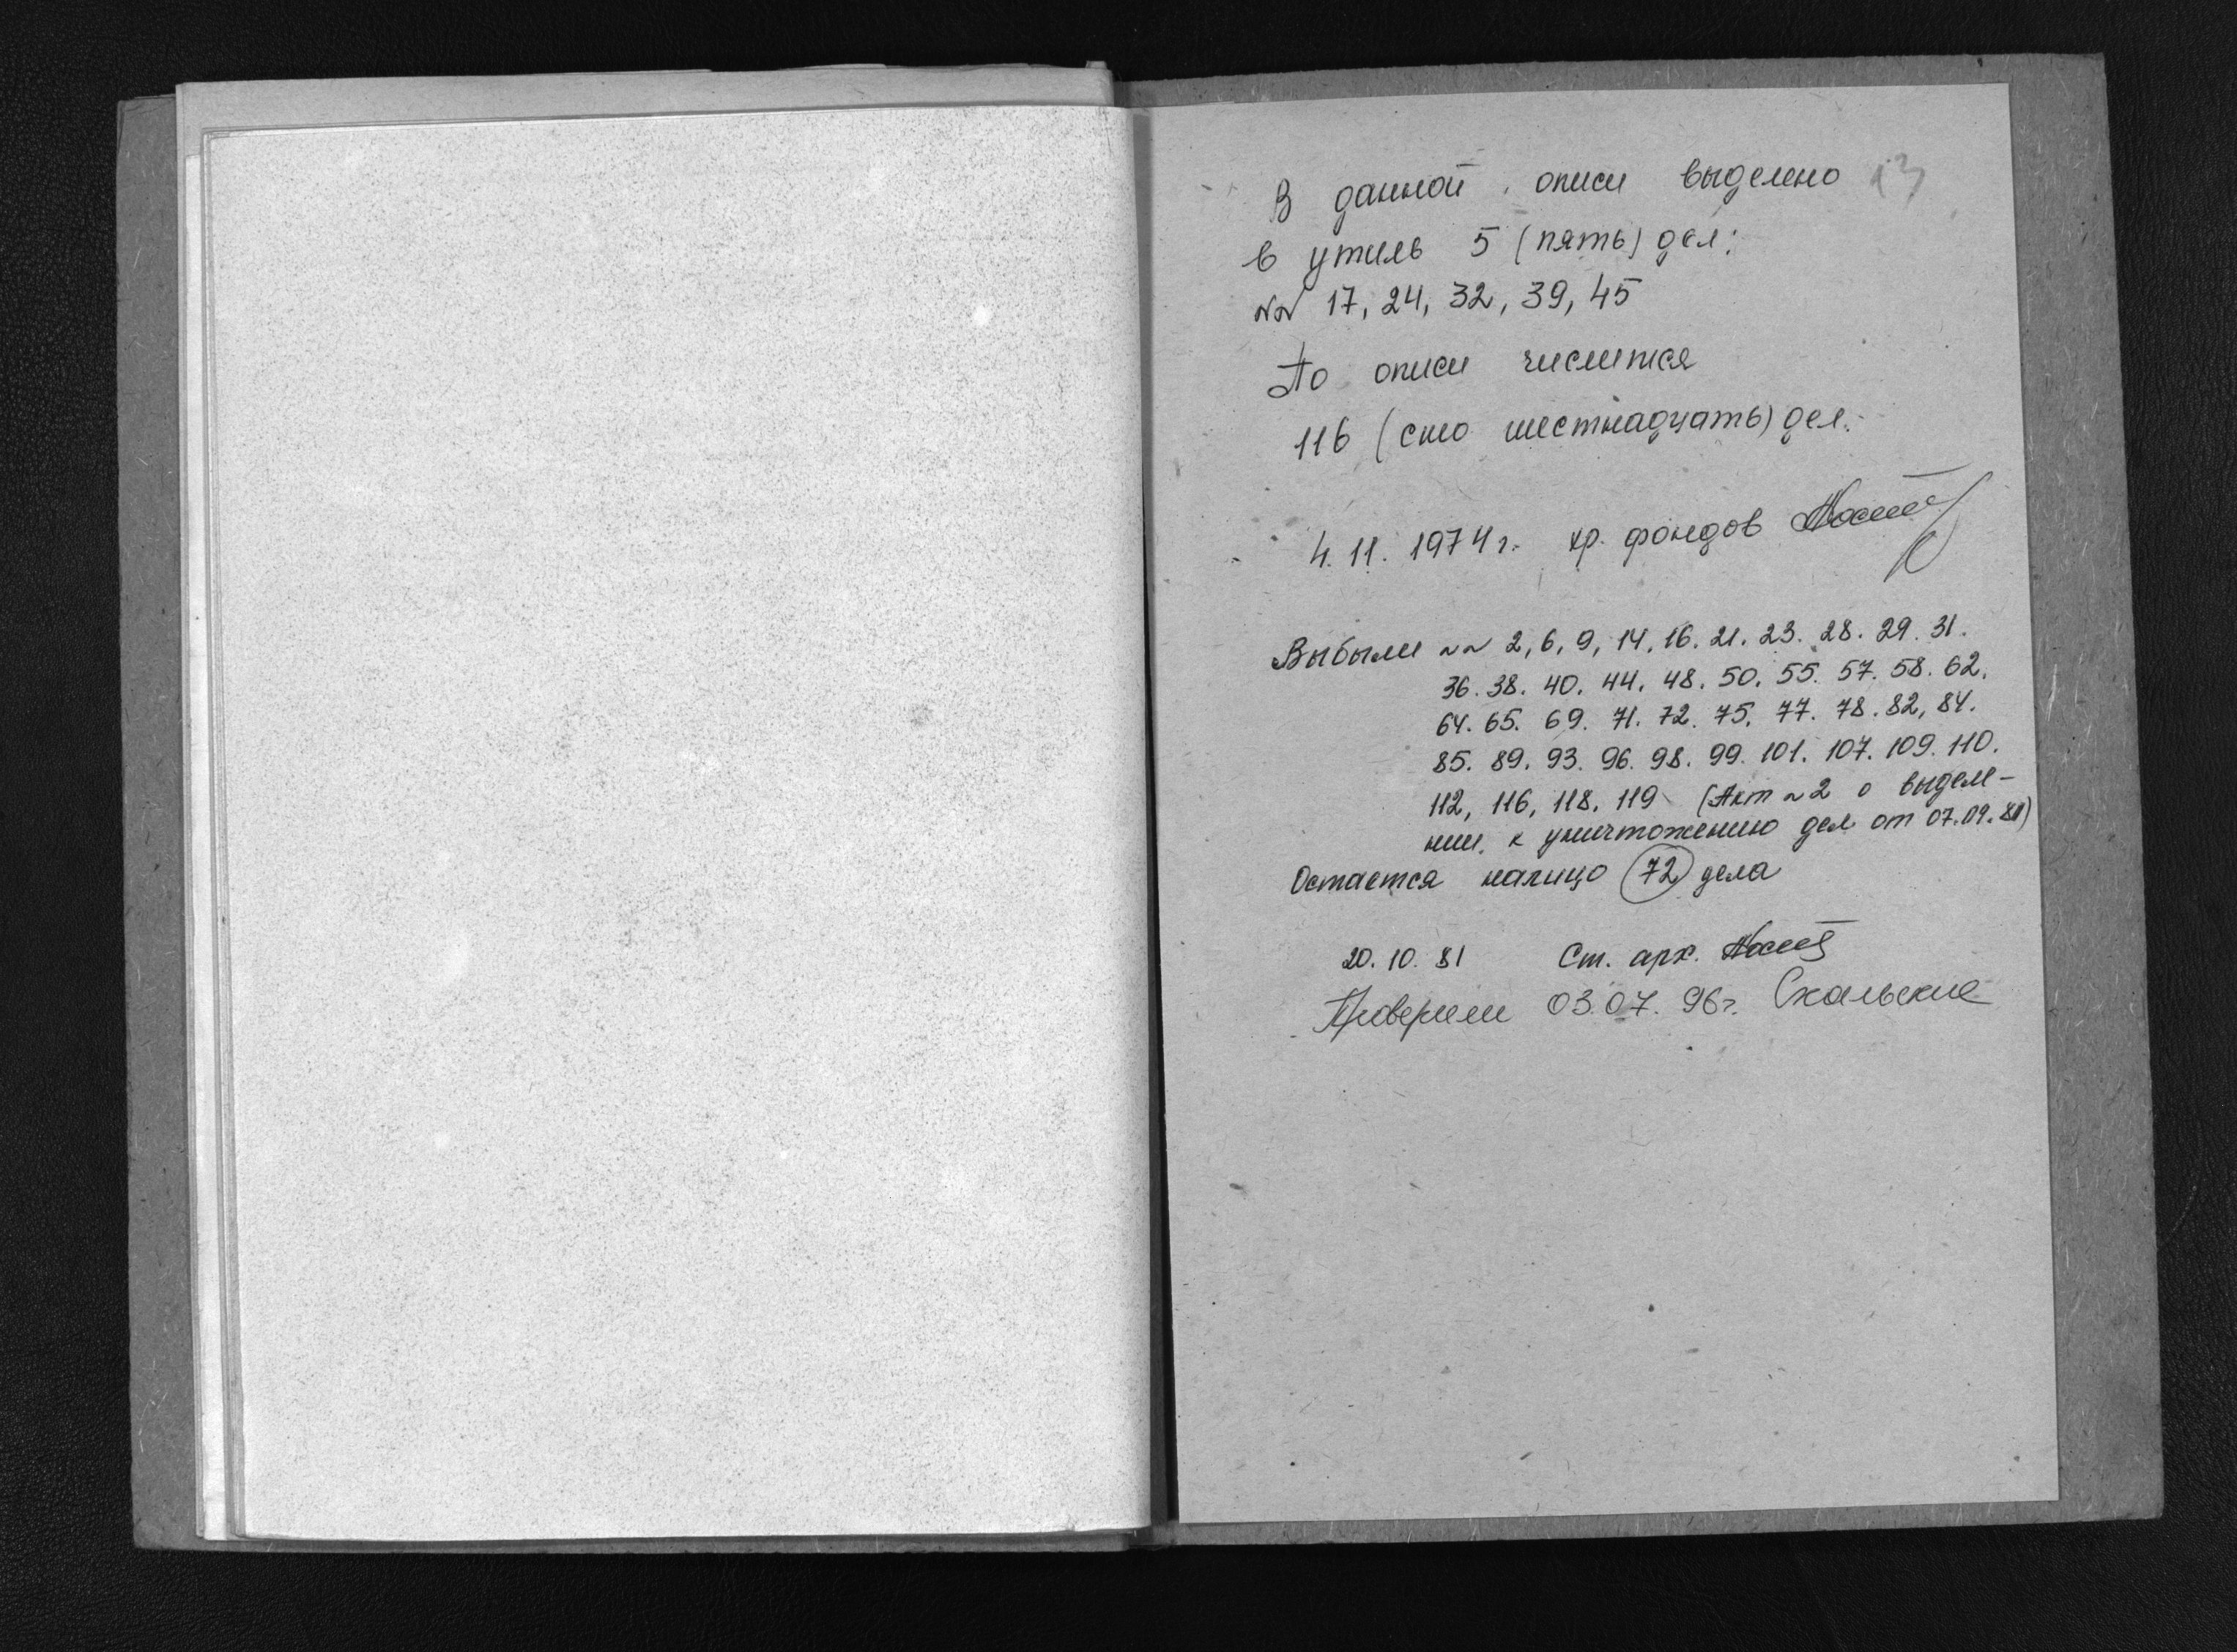 13
В данной описи выделено
в утиль 5 (пять) дел:
NN 17, 24, 32, 39, 45
По описи числится
116 (сто шестнадцать) дел.
4. 11. 1974 г. хр. фондов
Выбыли NN 2, 6, 9, 14, 16. 21. 23. 28. 29. 31.
36. 38. 40. 44. 48. 50. 55. 57. 58. 62.
64. 65. 69. 71. 72. 75. 77. 78. 82, 84.
85. 89. 93. 96. 98. 99. 101. 107. 109. 110.
112, 116, 118, 119 (Акт N 2 о выделе-
нии к уничтожению дел от 07.09.81)
Остается налицо 72 дела
20. 10. 81 Ст. арх.
Проверили 03.07. 96г.